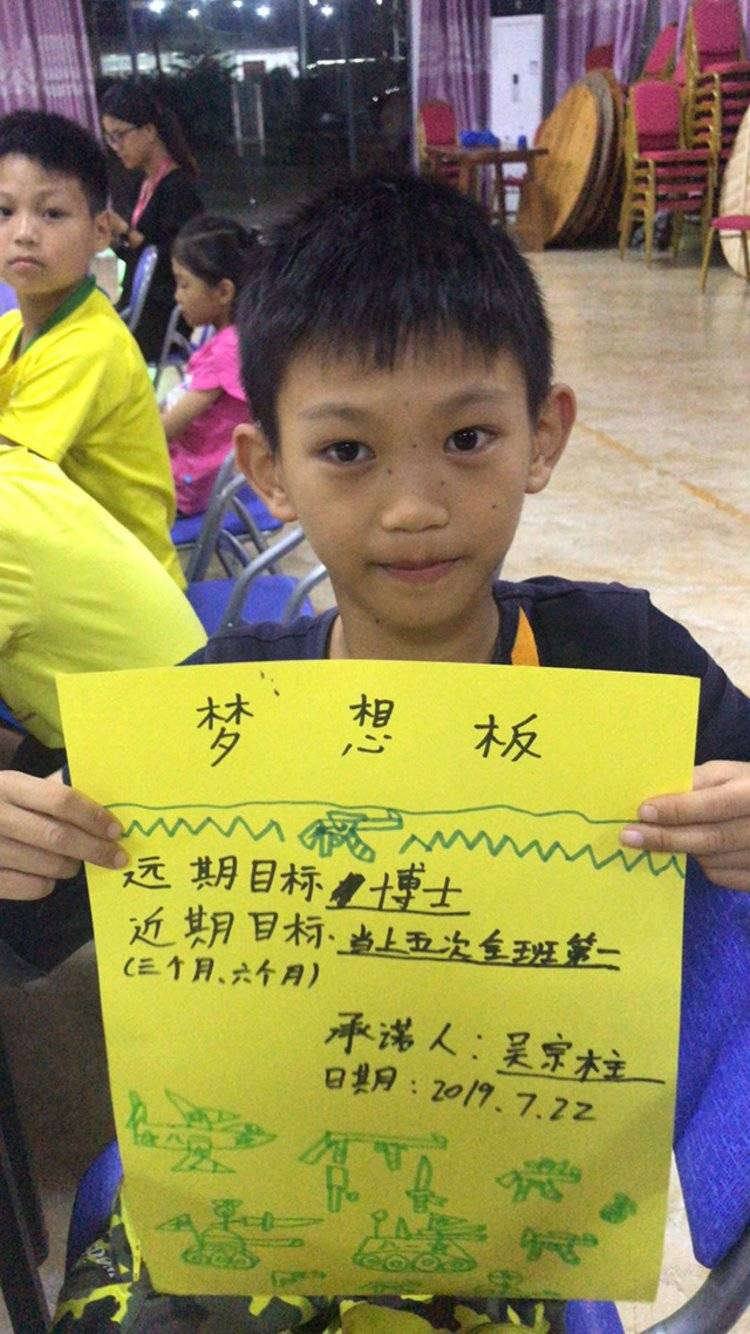 梦想板
远期目标 博士
近期目标 当上五次全班第一
(三个月、六个月)
承诺人：吴宗柱
日期：2019.7.22